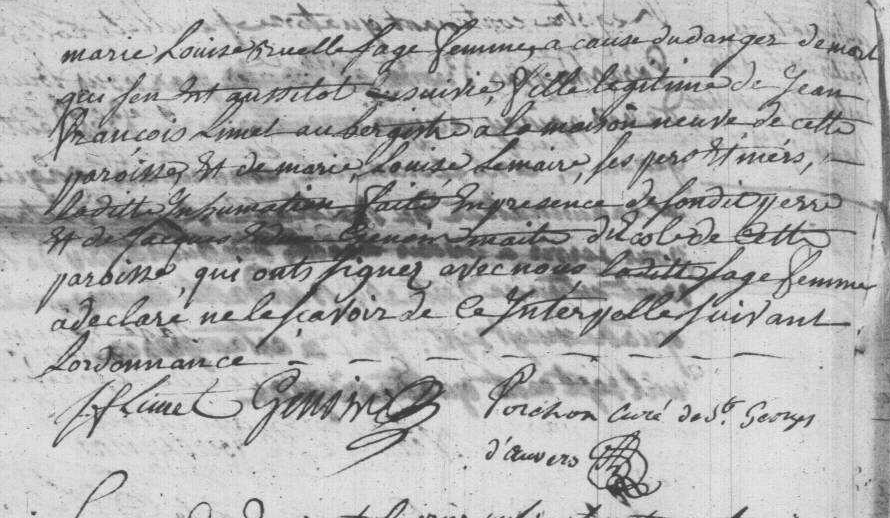 marie Louise ruelle sage femme, a cause du danger de mort
qui sen est aussitot ensuivie, fille legitime de Jean
François Limet aubergiste a la maison neuve de cette
paroisse, et de marie, Louise Lemaire, ses pere et mere, —
Laditte Inhumation faite En presence de son dit perre
Et de Jacques Genoin maitre d'Ecole de Cette
paroisse, qui onts signez avec nous laditte sage femme
a declaré ne le scavoir de ce Interpellé suivant
Lordonnance — — — — — — — —
jf Limet Genoin Porchon curé de St. Georges
d'auvers